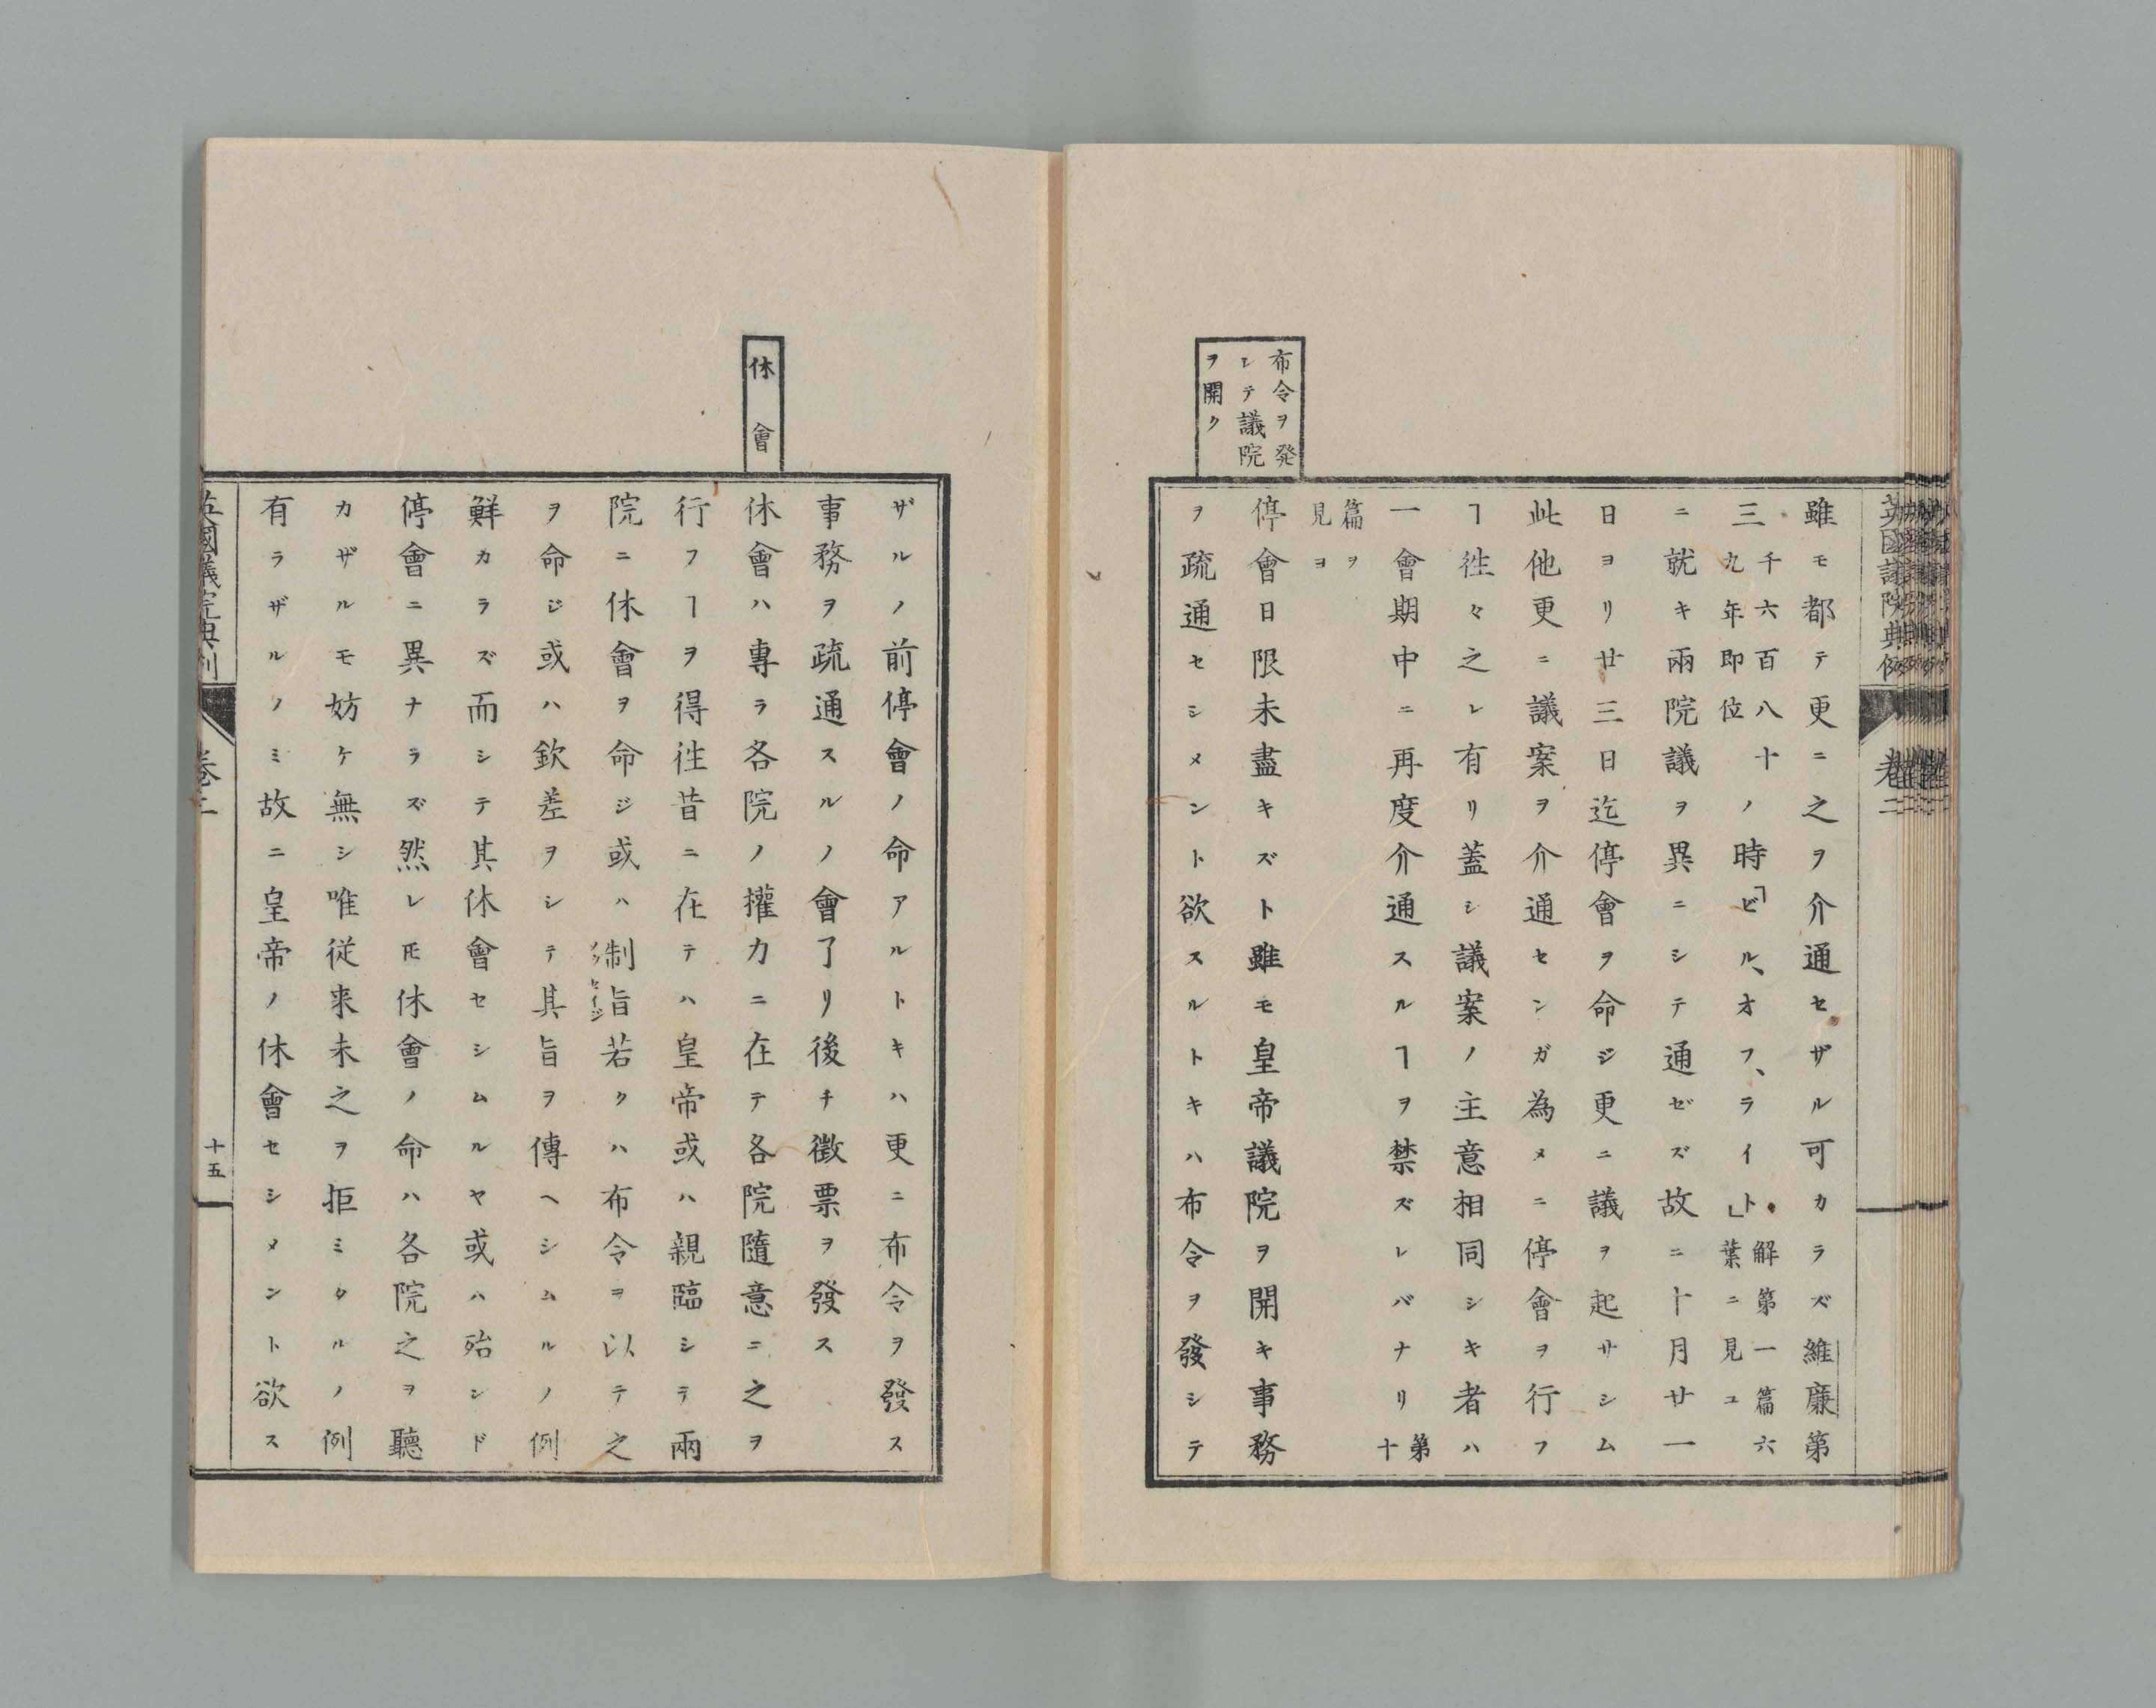 英國議院典例 卷二
雖モ都テ更ニ之ヲ介通セザル可カラズ維廉第
三千六百八十九年即位ノ時「ビル、オフ、ライト」解第一篇六葉ニ見ユ
ニ就キ兩院議ヲ異ニシテ通ゼズ故ニ十月廿一
日ヨリ廿三日迄停會ヲ命ジ更ニ議ヲ起サシム
此他更ニ議案ヲ介通センガ為メニ停會ヲ行フ
ヿ徃々之レ有リ蓋シ議案ノ主意相同シキ者ハ
一會期中ニ再度介通スルヿヲ禁ズレバナリ第十
篇ヲ見ヨ
布令ヲ発
シテ議院
ヲ開ク
停會日限未盡キズト雖モ皇帝議院ヲ開キ事務
ヲ疏通セシメント欲スルトキハ布令ヲ發シテ
ザルノ前停會ノ命アルトキハ更ニ布令ヲ發ス
事務ヲ疏通スルノ會了リ後チ徴票ヲ發ス
休會
休會ハ專ラ各院ノ權力ニ在テ各院隨意ニ之ヲ
行フヿヲ得徃昔ニ在テハ皇帝或ハ親臨シテ兩
院ニ休會ヲ命ジ或ハ制旨若クハ布令ヲ以テ之
ヲ命ジ或ハ欽差ヲシテ其旨ヲ傳ヘシムルノ例
鮮カラズ而シテ其休會セシムルヤ或ハ殆ンド
停會ニ異ナラズ然レ𪜈休會ノ命ハ各院之ヲ聽
カザルモ妨ケ無シ唯従来未之ヲ拒ミタルノ例
有ラザルノミ故ニ皇帝ノ休會セシメント欲ス
英國議院典例 卷二 十五